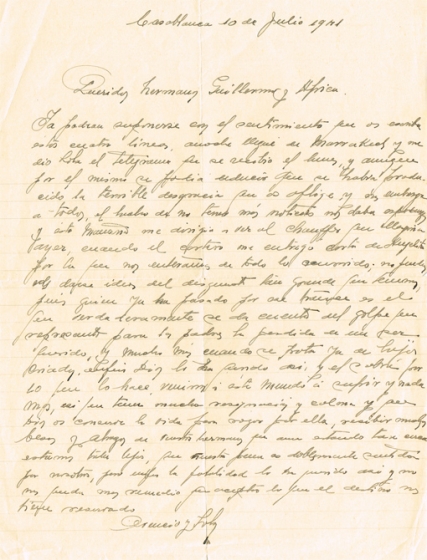 Casablanca 10 de Julio 1941
Queridos hermanos Guillermo y Africa.
Ya podreis suponeros con el sentimiento que os
estos cuatro lineas, anoche llegué de Marrakech y me
dio Lola el Telegrama que se recibió el lunes, y aunque
por el mismo se podia deducir que se habia produ-
cido la terrible desgracia que os aflige, y sin embargo
a todos, el hecho de no tener más noticias nos daba esperanza
y esta mañana me dirigia a ver al chauffer que llegaria
ayer, cuando el cartero me entregó carta de
por la que nos enterabamos de todo lo ocurrido. no podeis
idea del disgusto tan grande que tenemos,
pues quien ya ha pasado por ese es el
que verdaderamente se da cuenta del golpe que
representa para los padres la perdida de un ser
querido, y mucho mas cuando se trata ya de hijos
criados. Dios lo ha querido asi, y el sabra por
lo que lo hace, venimos a este mundo a sufrir y nada
mas, asi que tener mucha resignacion y calma y que
Dios os conserve la vida para rogar por ella, recibir muchos
besos y abrazos de vuestros hermanos que aun estando tan
todo lejos, que nuestra pena es doblemente sentida
por nosotros, pero la fatalidad lo ha querido asi y no
nos queda mas remedio que aceptar lo que el destino nos
tiene reservado
y Lola